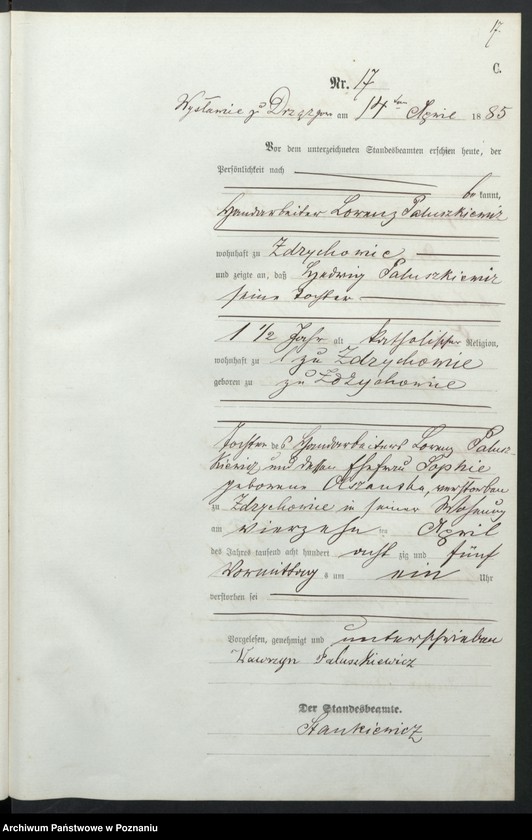 17.
C.
Nr. 17
am 14ten April 1885
Vor dem unterzeichneten Standesbeamten erschien heute, der
Persönlichkeit nach
be kannt,
Handarbeiter Lorenz Paluszkiewicz
wohnhaft zu Zdrychowic
und zeigte an, daß Hedwig Paluszkiewicz
seine Tochter
1 1/2 Jahr alt katholischer Religion,
wohnhaft zu zu Zdrychowic
geboren zu zu Zdrychowic
Tochter des Handarbeiters Lorenz Palusz-
kiewicz und dessen Ehefrau Sophie
geborene verstorben
zu Zdrychowic in seiner Wohnung
am vierzehn ten April
des Jahres tausend acht hundert acht zig und fünf
Vormittag s um ein Uhr
verstorben sei
Vorgelesen, genehmigt und unterschrieben
Wawrzyn Paluszkiewicz
Der Standesbeamte.
Stankiewicz
Archiwum Państwowe w Poznaniu